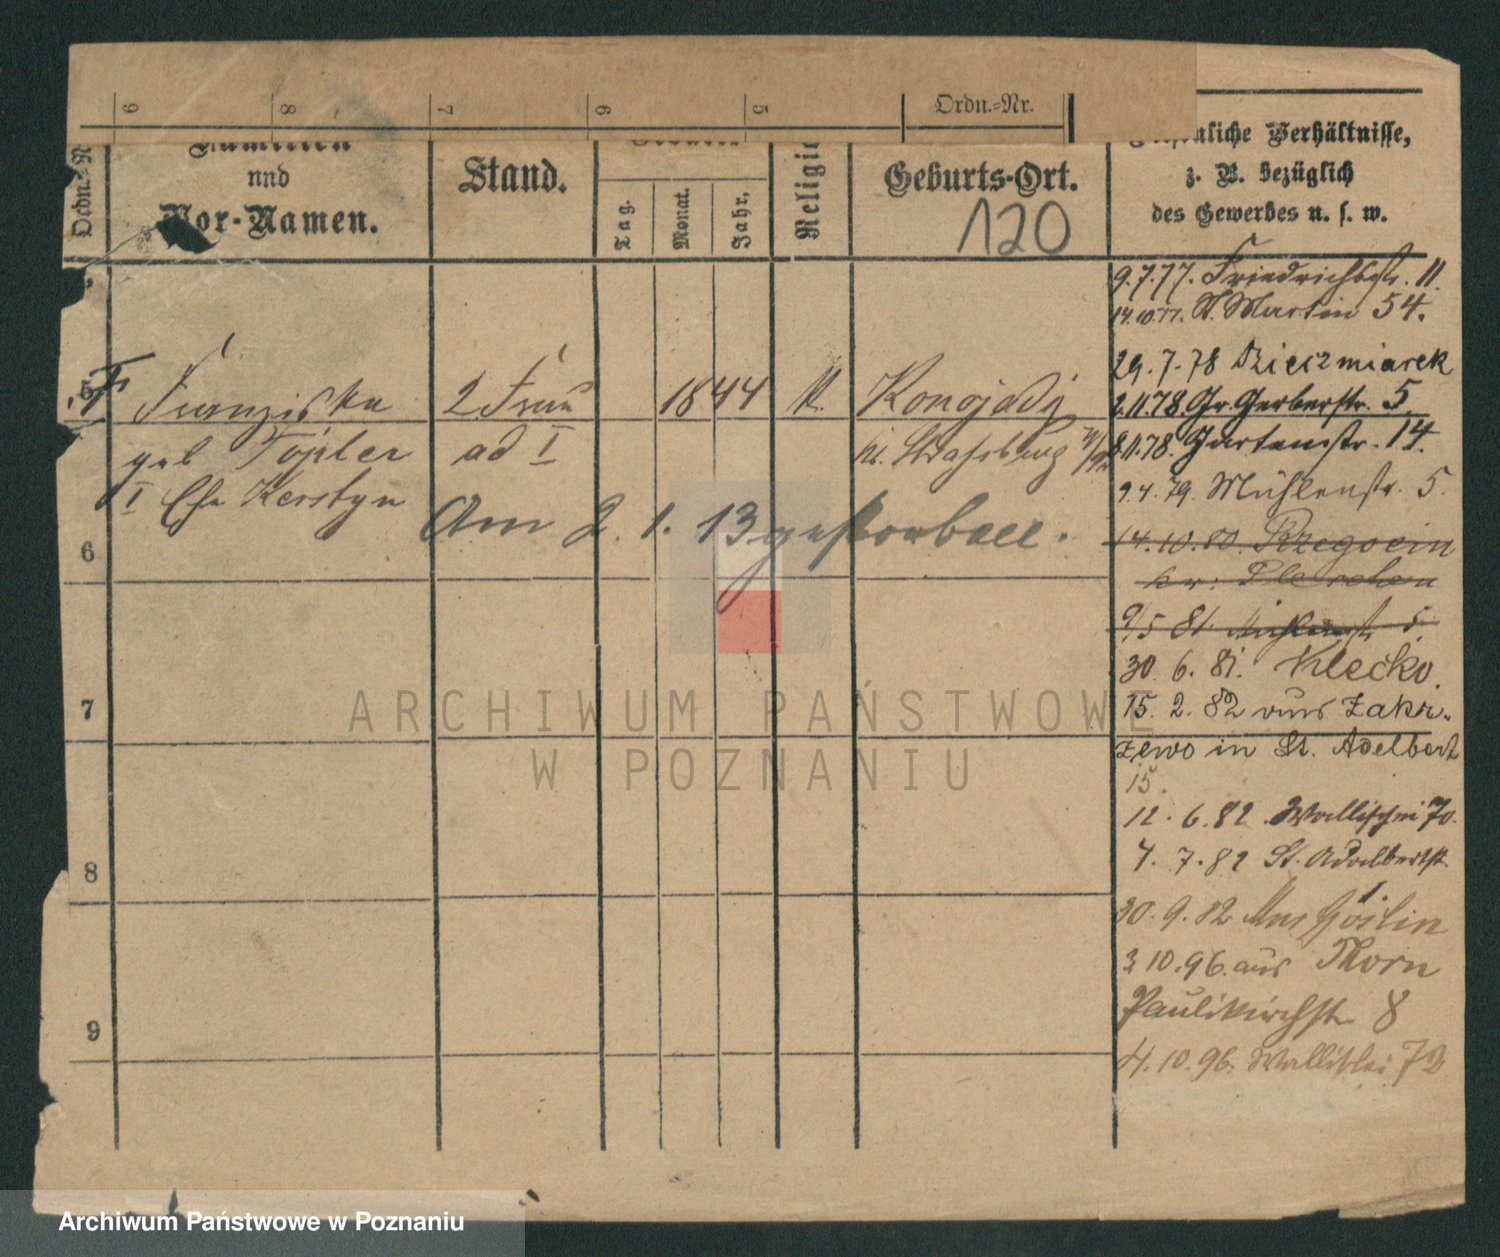 9 8 7 6 5 Ordn.-Nr.
Ordn.-N
Familien
und
Vor-Namen.
Stand.
Tag.
Monat.
Jahr.
Religio
Geburts-Ort.
120
Persönliche Verhältnisse,
z. B. bezüglich
des Gewerbes u. s. w.
9.7.77. Friedrichstr. 11.
14.10.77. St. Martin 54.
29.7.78 Dzieczmiarek
2.11.78 Gr. Gerberstr. 5.
8.11.78. Gartenstr. 14.
9.4.79. Mühlenstr. 5.
14.10.80.
kr: Pleschen
9/5 81. Mühlenstr. 5.
30.6.81. Klecko.
15.2.82 aus Zakr-
zewo in St. Adelbert
15.
12.6.82 Wallischei 70.
4.7.82 St. Adalbertstr.
1
30.9.82 Aus Göslin
3 10.96. aus Thorn
Paulikirchstr 8
4.10.96. Wallischei 72
5 Franziska 2 Frau 1844 K. Konojady
geb Töpler ad I Kr. Strasburg
I Ehe Kerstyn
Am 2. 1. 13 gestorben.
6
7
8
9
ARCHIWUM PAŃSTWOWE
W POZNANIU
Archiwum Państwowe w Poznaniu